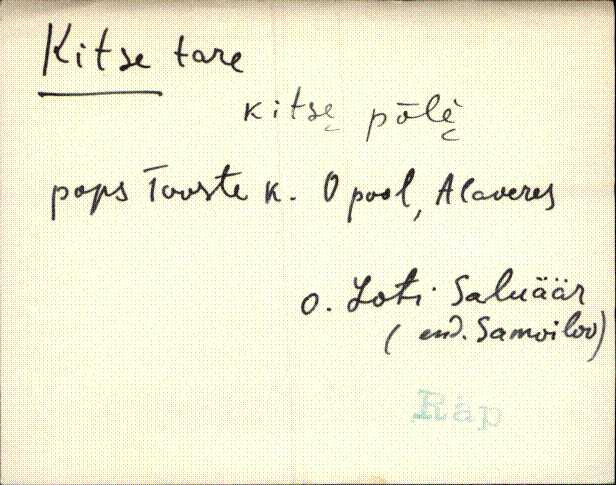 Kitse tare
kitsę pōlè̜
pops Tooste k. O pool, Alaveres
o. Loti Saluäär
(end. Samoilov)
Räp